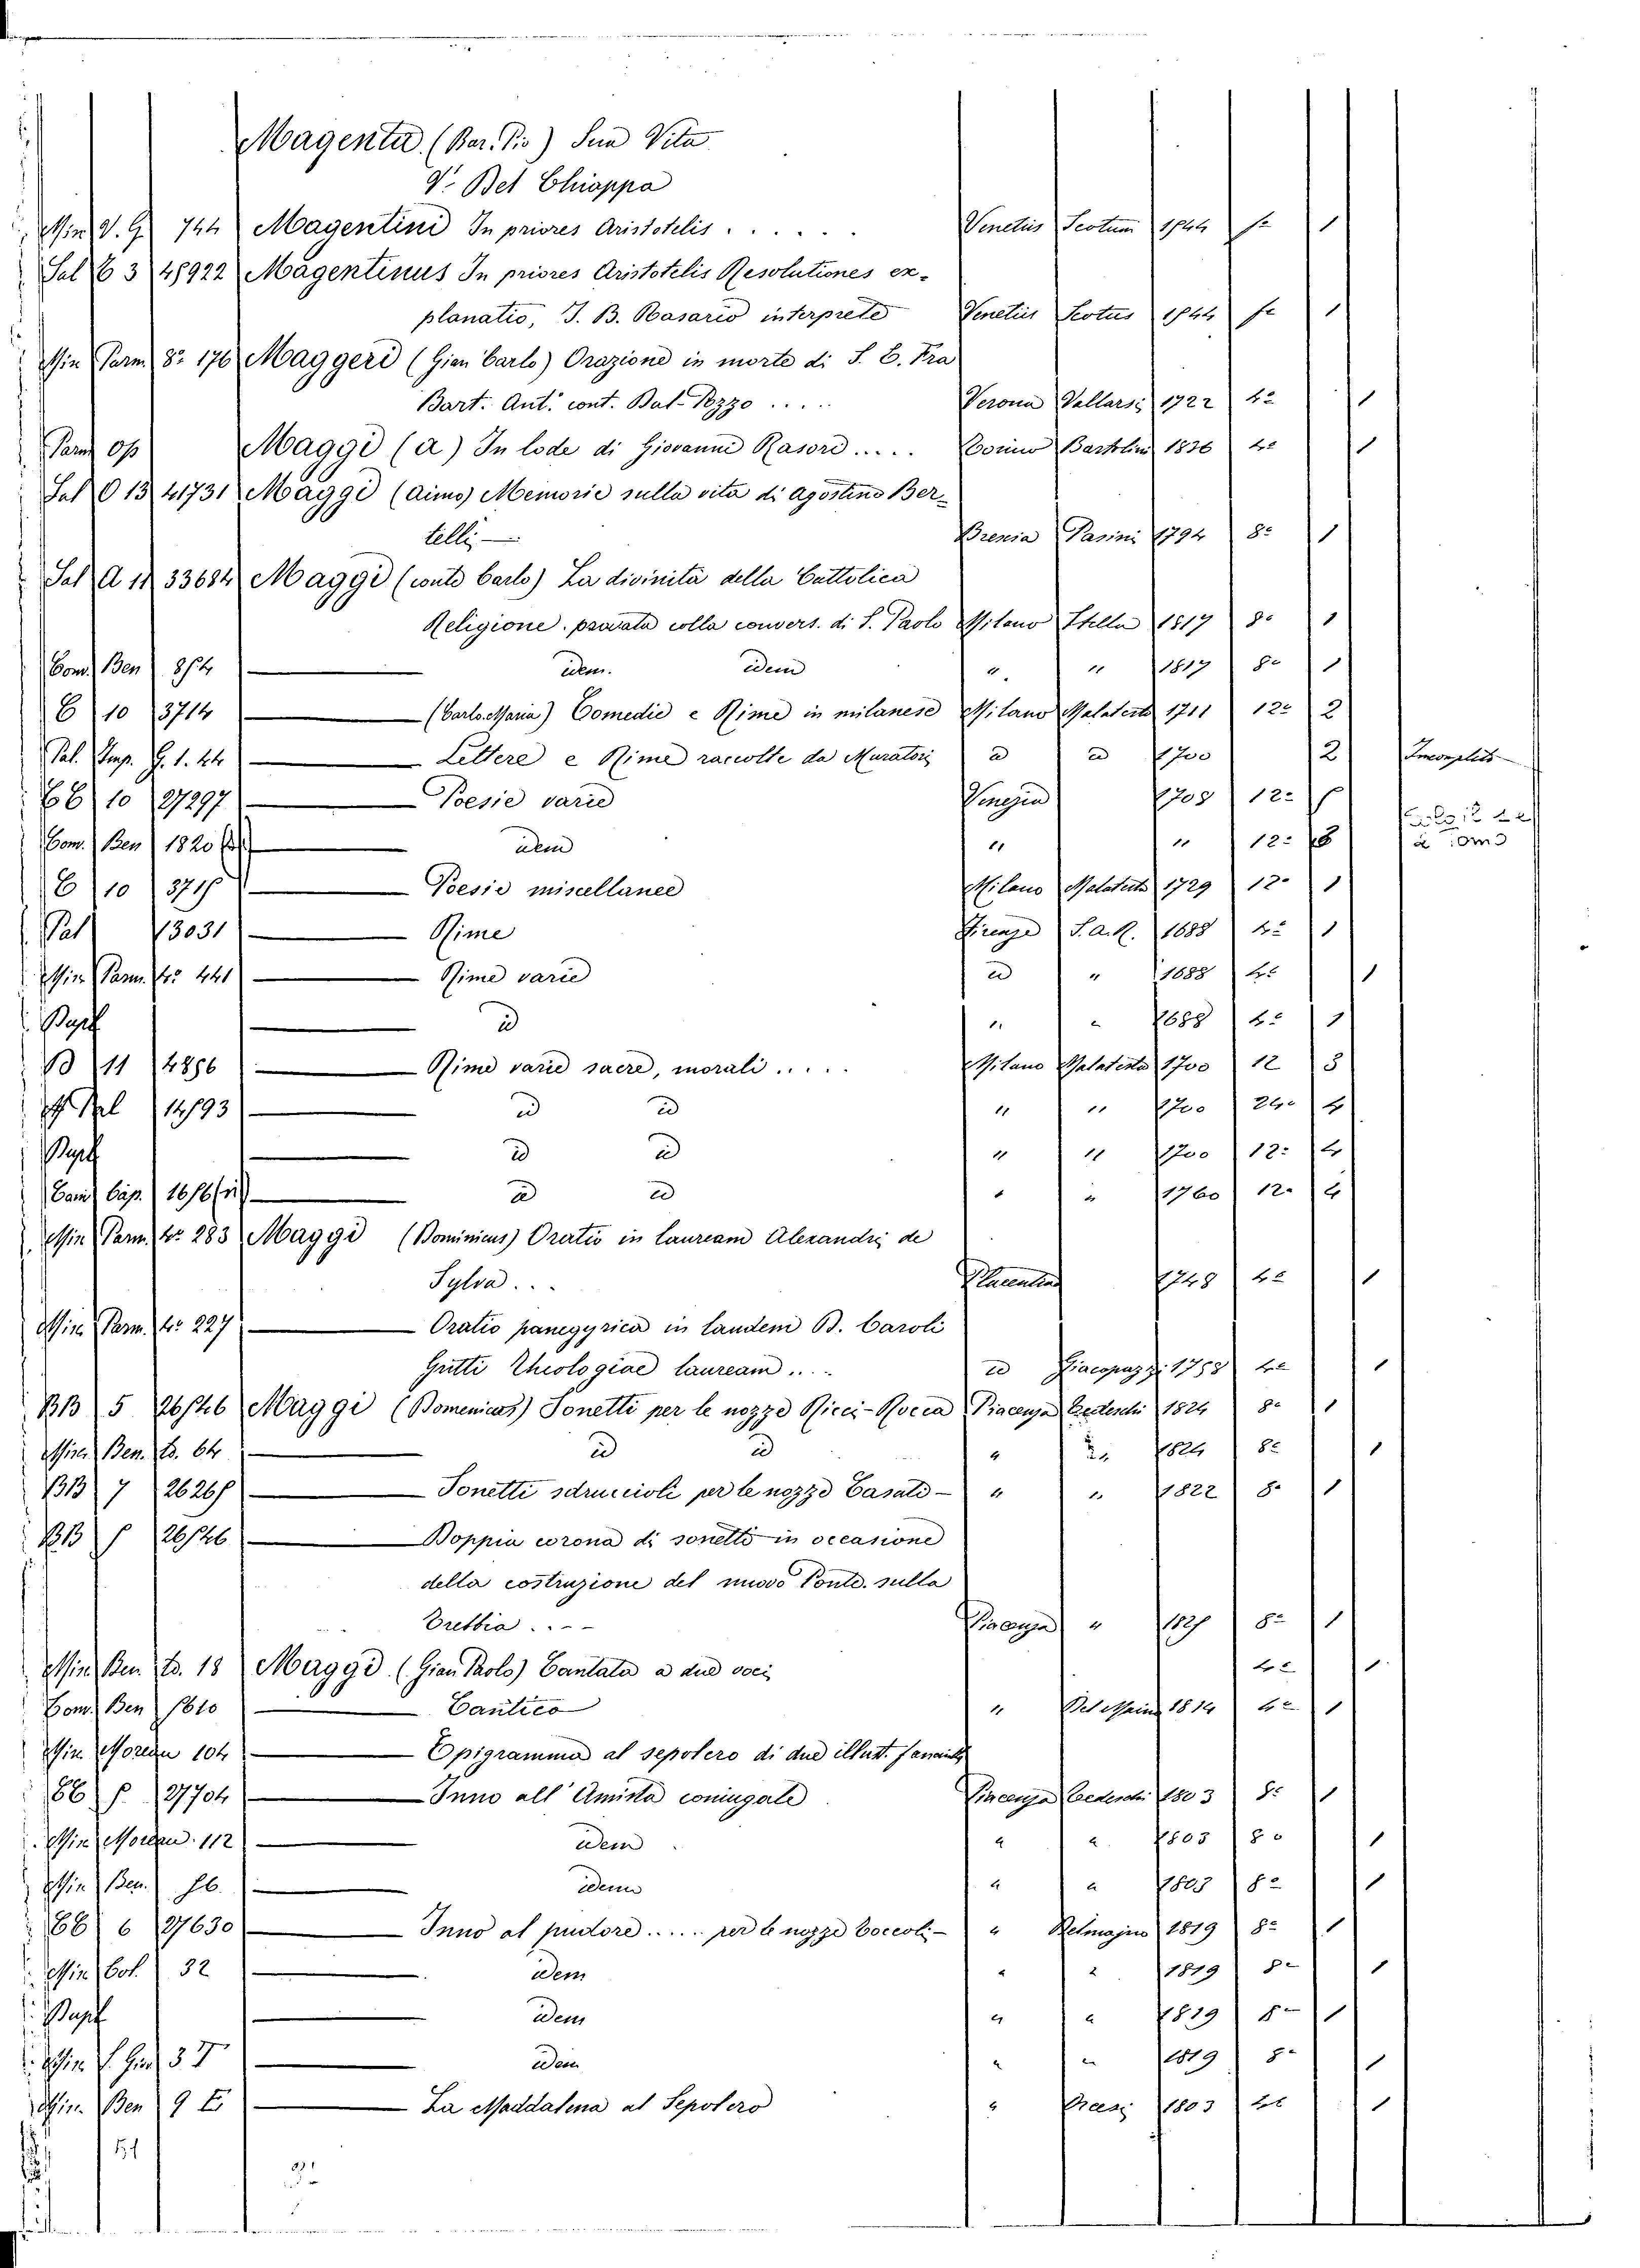 Magenta (Bar. Pio) Sua Vita
V. Bel Chiappa
Min V. G 744 Magentini In priores Aristotelis . . . . . . Venetiis Scotum 1544 fo 1
Sal C 3 45922 Magentinus In priores Aristotelis Resolutiones ex-
planatio, J. B. Rasario interprete Venetiis Scotus 1544 fo 1
Min Parm 8o 176 Maggeri (Gian Carlo) Orazione in morte di S. E. Fra
Bart. Ant. cont. Bal. Pozzo . . . . Verona Vallarsi 1722 4o 1
Parm Op Maggi (A) In lode di Giovanni Rasori . . . . . Torino Bartolini 1836 4o 1
Sal O 13 41731 Maggi (Aimo) Memorie sulla vita di Agostino Ber-
telli — Brescia Pasini 1794 8o 1
Sal A 11 33684 Maggi (conte Carlo) La divinità della Cattolica
Religione provata colla convers. di S. Paolo Milano Stella 1817 8o 1
Com. Ben 854 — idem. idem " " 1817 8o 1
C 10 3714 — (Carlo Maria) Comedie e Rime in milanese Milano Malatesta 1711 12o 2
Pal. Imp. G. 1. 44 — Lettere e Rime raccolte da Muratori id id 1700 2 Incompleto
CC 10 27297 — Poesie varie Venezia 1708 12o
Com. Ben 1820 — idem " " 12o
C 10 3715 — Poesie miscellanee Milano Malatesta 1729 12o 1
Pal 13031 — Rime Firenze S.A.R. 1688 4o 1
Min Parm. 4o 441 — Rime varie id " 1688 4o 1
— id " " 1688 4o 1
B 11 4856 — Rime varie sacre, morali . . . . . Milano Malatesta 1700 12 3
Pal 14593 — id id " " 1700 24o 4
— id id " " 1700 12o 4
Cam. Cap. 1656 — id id " " 1760 12o 4
Min Parm. 4o 283 Maggi (Dominicus) Oratio in lauream Alexandri de
Sylva . . . Placentiae 1748 4o 1
Min Parm. 4o 227 — Oratio panegyrica in laudem B. Caroli
Gritti Theologiae lauream . . . . id Giacopazzi 1758 4o 1
BB 5 26546 Maggi (Domenicus) Sonetti per le nozze Ricci-Rocca Piacenza Tedeschi 1824 8o 1
Min Ben. to. 64 — id id " " 1824 8o 1
BB 7 26265 — Sonetti sdruccioli per le nozze Casati - " " 1822 8o 1
BB 5 26546 — Doppia corona di sonetti in occasione
della costruzione del nuovo Ponte sulla
Trebbia . . - - Piacenza " 1825 8o 1
Min Ben. to. 18 Maggi (Gian Paolo) Cantata a due voci 4o 1
Com Ben 1610 — Cantico " Del Maino 1814 4o 1
Min Moreau 104 — Epigramma al sepolcro di due illust.
CC 5 27704 — Inno all' Amistà coniugale Piacenza Tedeschi 1803 8o 1
Min Moreau 112 — idem " " 1803 8o 1
Min Ben. 56. — idem " " 1803 8o 1
CC 6 27630 — Inno al pudore . . . . . per le nozze Coccoli - " Delmajno 1819 8o 1
Min Col. 32 — idem " " 1819 8o 1
— idem " " 1819 8o 1
Min 37 — idem " " 1819 8o 1
Min. Ben 9 — La Maddalena al Sepolcro " 1803 4o 1
51